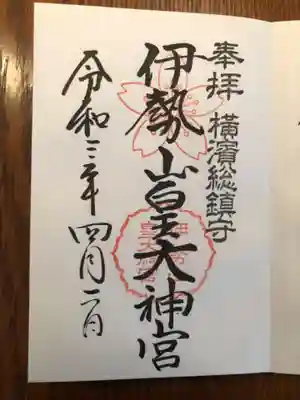 奉拝 横濱総鎮守
伊勢山皇大神宮
令和三年 四月二日